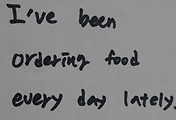 I've been
ordering food
every day lately.